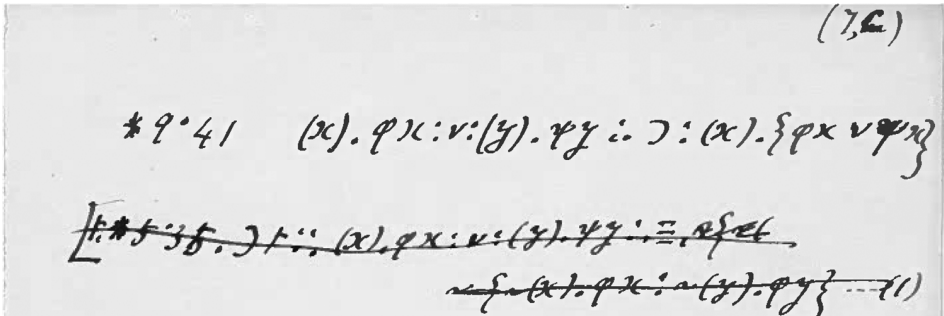 *9·41 (x).φx:v:(y).ψy:.⊃:(x).{φx v ψx}
[⊦.*5·35.⊃⊦:.:(x).φx:v:(y).ψy:.≡.
~{~(x).φx:~(y).φy} ---(1)